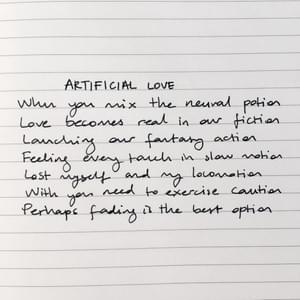 ARTIFICIAL LOVE
When you mix the neural potion
Love becomes real in our fiction
Launching our fantasy action
Feeling every touch in slow motion
Lost myself and my locomotion
With you need to exercise caution
Perhaps fading is the best option